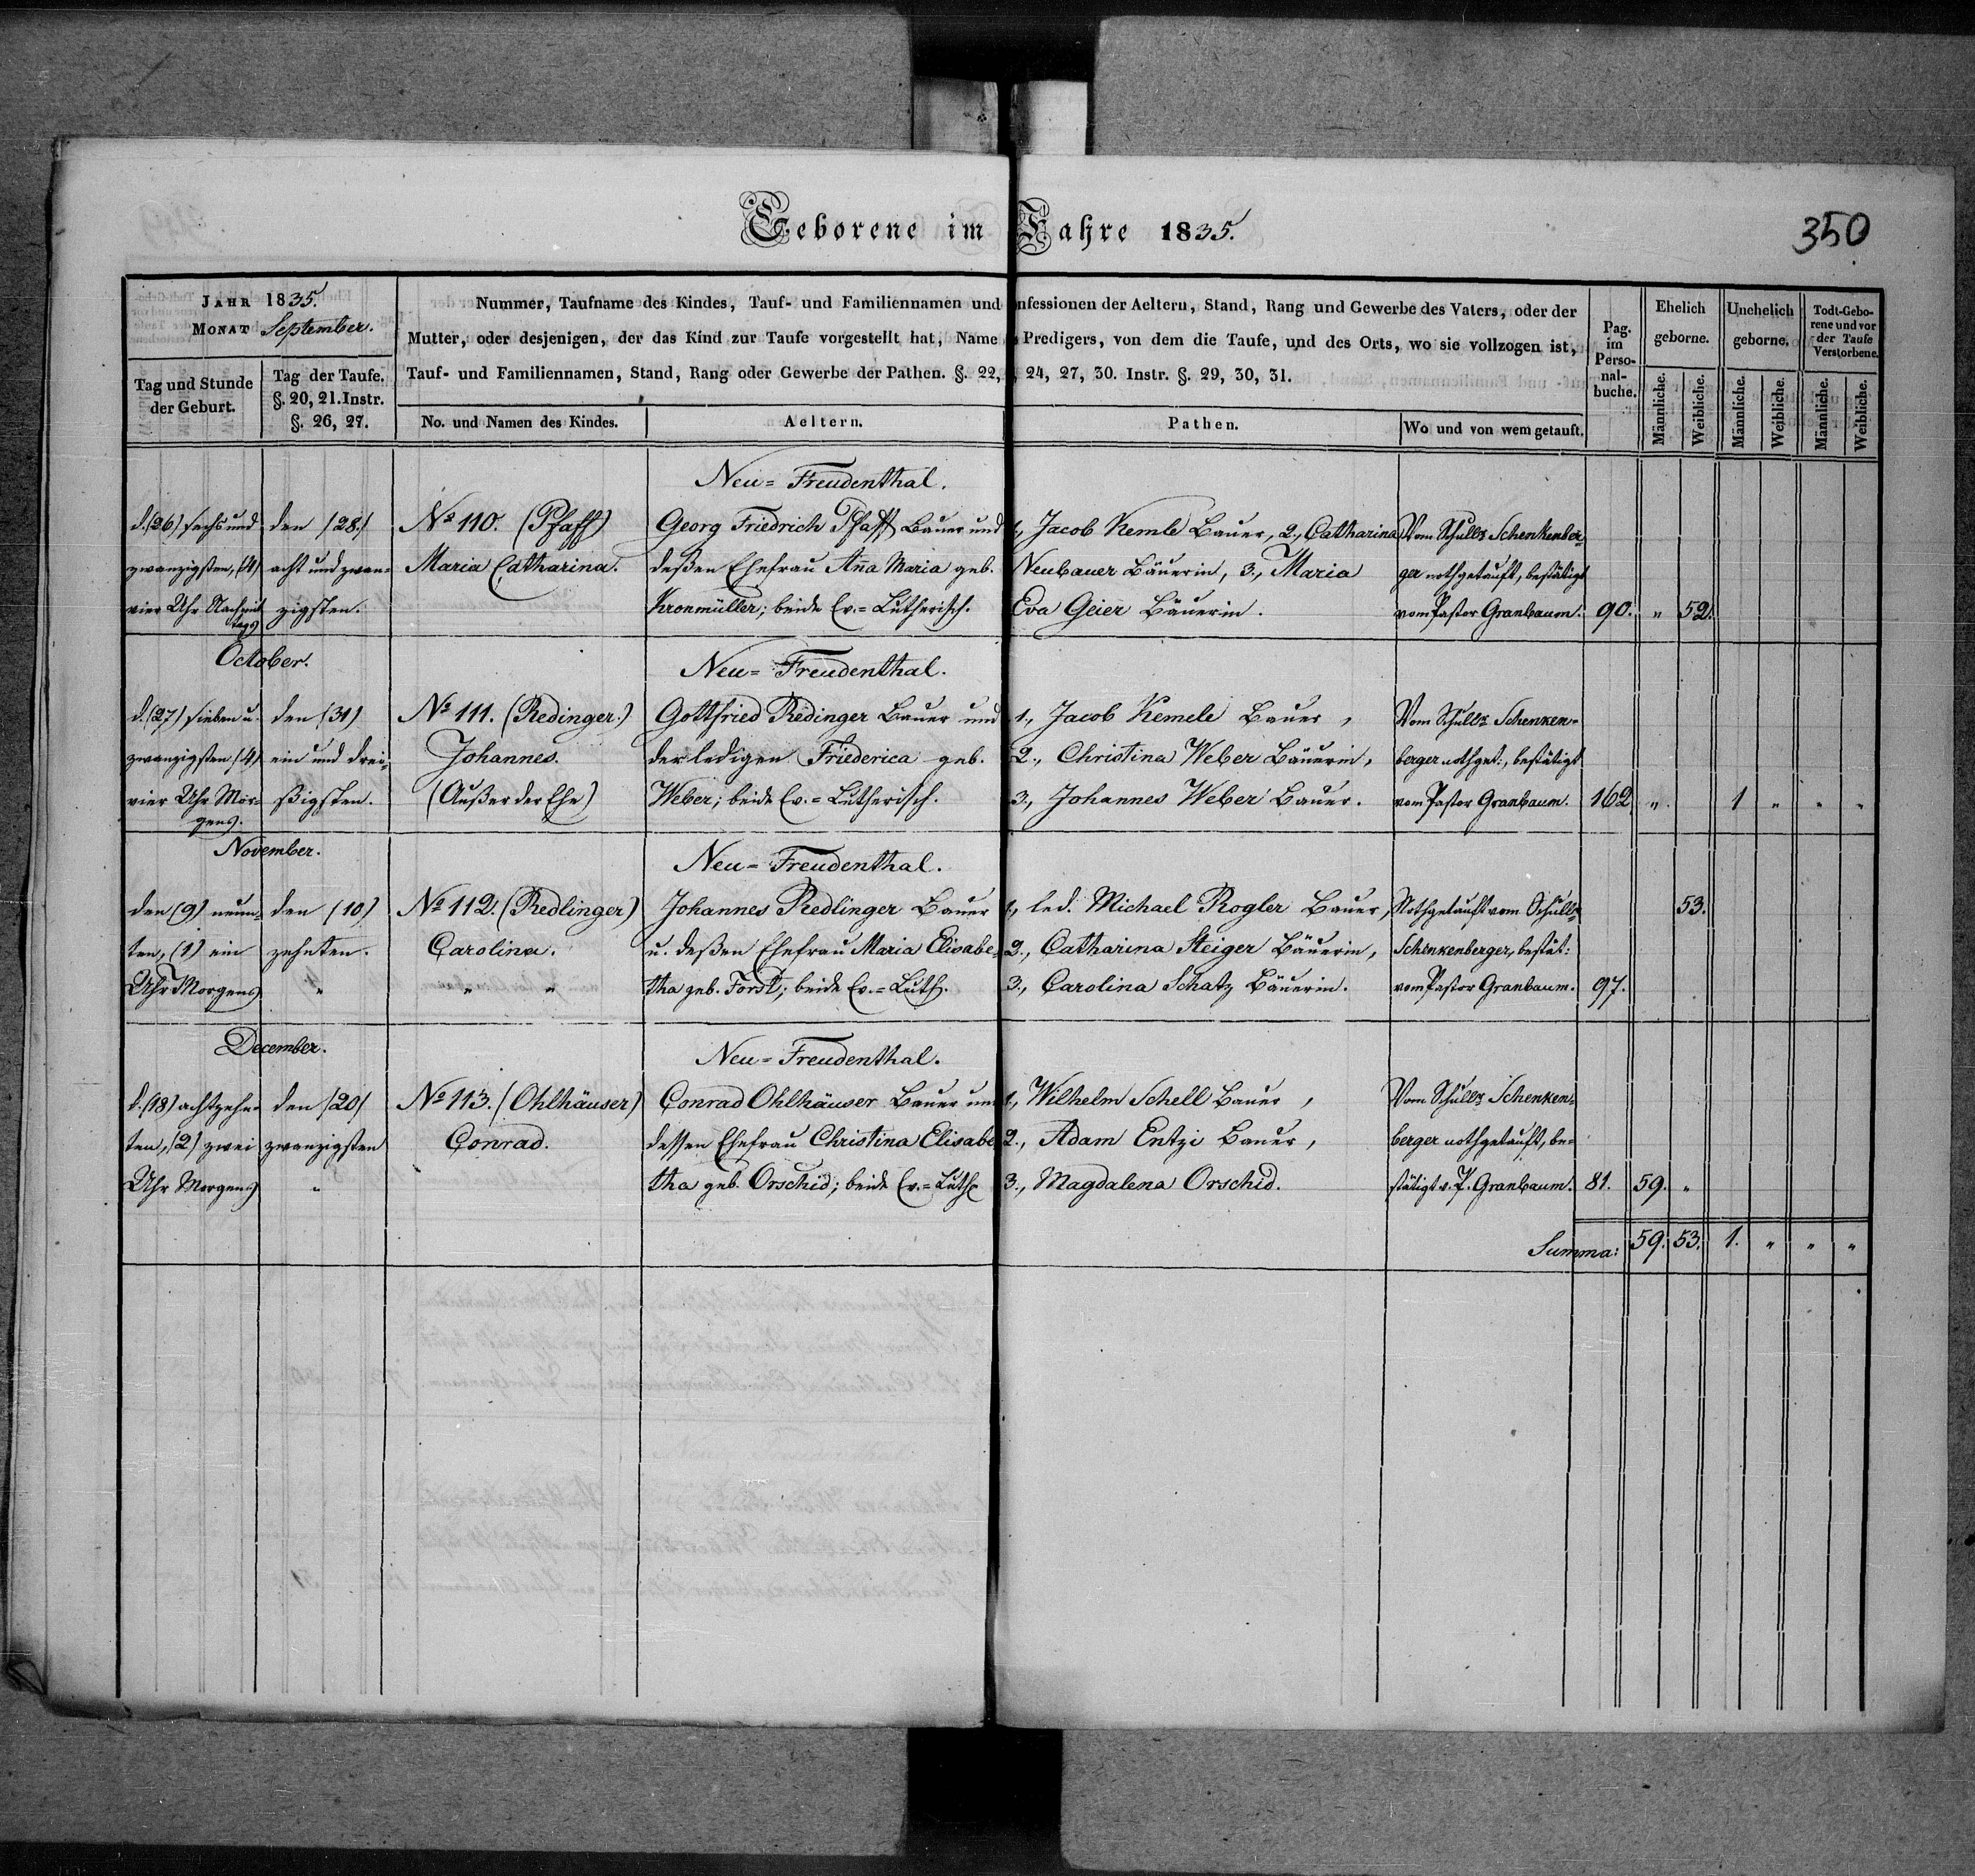 Geborene im Jahre 1835.
350
JAHR 1835.
MONAT September.
Tag und Stunde der Geburt.
Tag der Taufe. §. 20, 21. Instr. §. 26, 27.
Nummer, Taufname des Kindes, Tauf- und Familiennamen und nfessionen der Aeltern, Stand, Rang und Gewerbe des Vaters, oder der
Mutter, oder desjenigen, der das Kind zur Taufe vorgestellt hat, Name Predigers, von dem die Taufe, und des Orts, wo sie vollzogen ist,
Tauf- und Familiennamen, Stand, Rang oder Gewerbe der Pathen. §. 22, 24, 27, 30. Instr. §. 29, 30, 31.
No. und Namen des Kindes.
Aeltern.
Pathen.
Wo und von wem getauft.
Pag. im Perso- nal- buche.
Ehelich geborne.
Unehelich geborne.
Todt-Gebo- rene und vor der Taufe Verstorbene.
Männliche. Weibliche. Männliche. Weibliche. Männliche. Weibliche.
Neu-Freudenthal.
d. (26) sechs und den (28.) No 110. (Pfaff) Georg Friedrich Pfaff Bauer und 1., Jacob Kemle Bauer, 2., Catharina Vom Schullz Schenkenber-
zwanzigsten, (4) acht und zwan- Maria Catharina. deßen Ehefrau Aña Maria geb. Neubauer Bäuerin, 3., Maria ger nothgetauft, bestätigt
vier Uhr Nachmit tags zigsten. Kronmüller; beide Ev.-Lutherisch. Eva Geier Bäuerin. vom Pastor Granbaum. 90. " 52.
October. Neu-Freudenthal.
d. (27) sieben u. den (31) No 111. (Redinger.) Gottfried Redinger Bauer und 1., Jacob Kemele Bauer, Vom Schullz Schenken-
zwanzigsten (4) ein und drei- Johannes. der ledigen Friederica geb. 2., Christina Weber Bäuerin, berger nothget:, bestätigt
vier Uhr Mor- gens. ßigsten. (Außer der Ehe) Weber; beide Ev.-Lutherisch. 3., Johannes Weber Bauer. vom Pastor Granbaum. 162 " 1 " " "
November. Neu-Freudenthal.
den (9) neun- den (10) No 112. (Redlinger) Johannes Redlinger Bauer 1., led. Michael Rogler Bauer, Nothgetauft vom Schullz 53.
ten, (1) ein zehnten. Carolina. u. deßen Ehefrau Maria Elisabe- 2., Catharina Steiger Bäuerin, Schenkenberger, bestät:
Uhr Morgens " " " tha geb. Forst; beide Ev.-Luth. 3., Carolina Schatz Bäuerin. vom Pastor Granbaum. 97.
December. Neu-Freudenthal.
d. (18) achtzehn- den (20) No 113. (Ohlhäuser) Conrad Ohlhäuser Bauer und 1., Wilhelm Schell Bauer, Vom Schullz Schenken-
ten, (2) zwei zwanzigsten Conrad. dessen Ehefrau Christina Elisabe 2., Adam Entzi Bauer, berger nothgetauft, be-
Uhr Morgens " tha geb. Orschid; beide Ev.-Luth. 3., Magdalena Orschid. stätigt v. P. Granbaum. 81. 59. "
Summa: 59. 53. 1. " " "